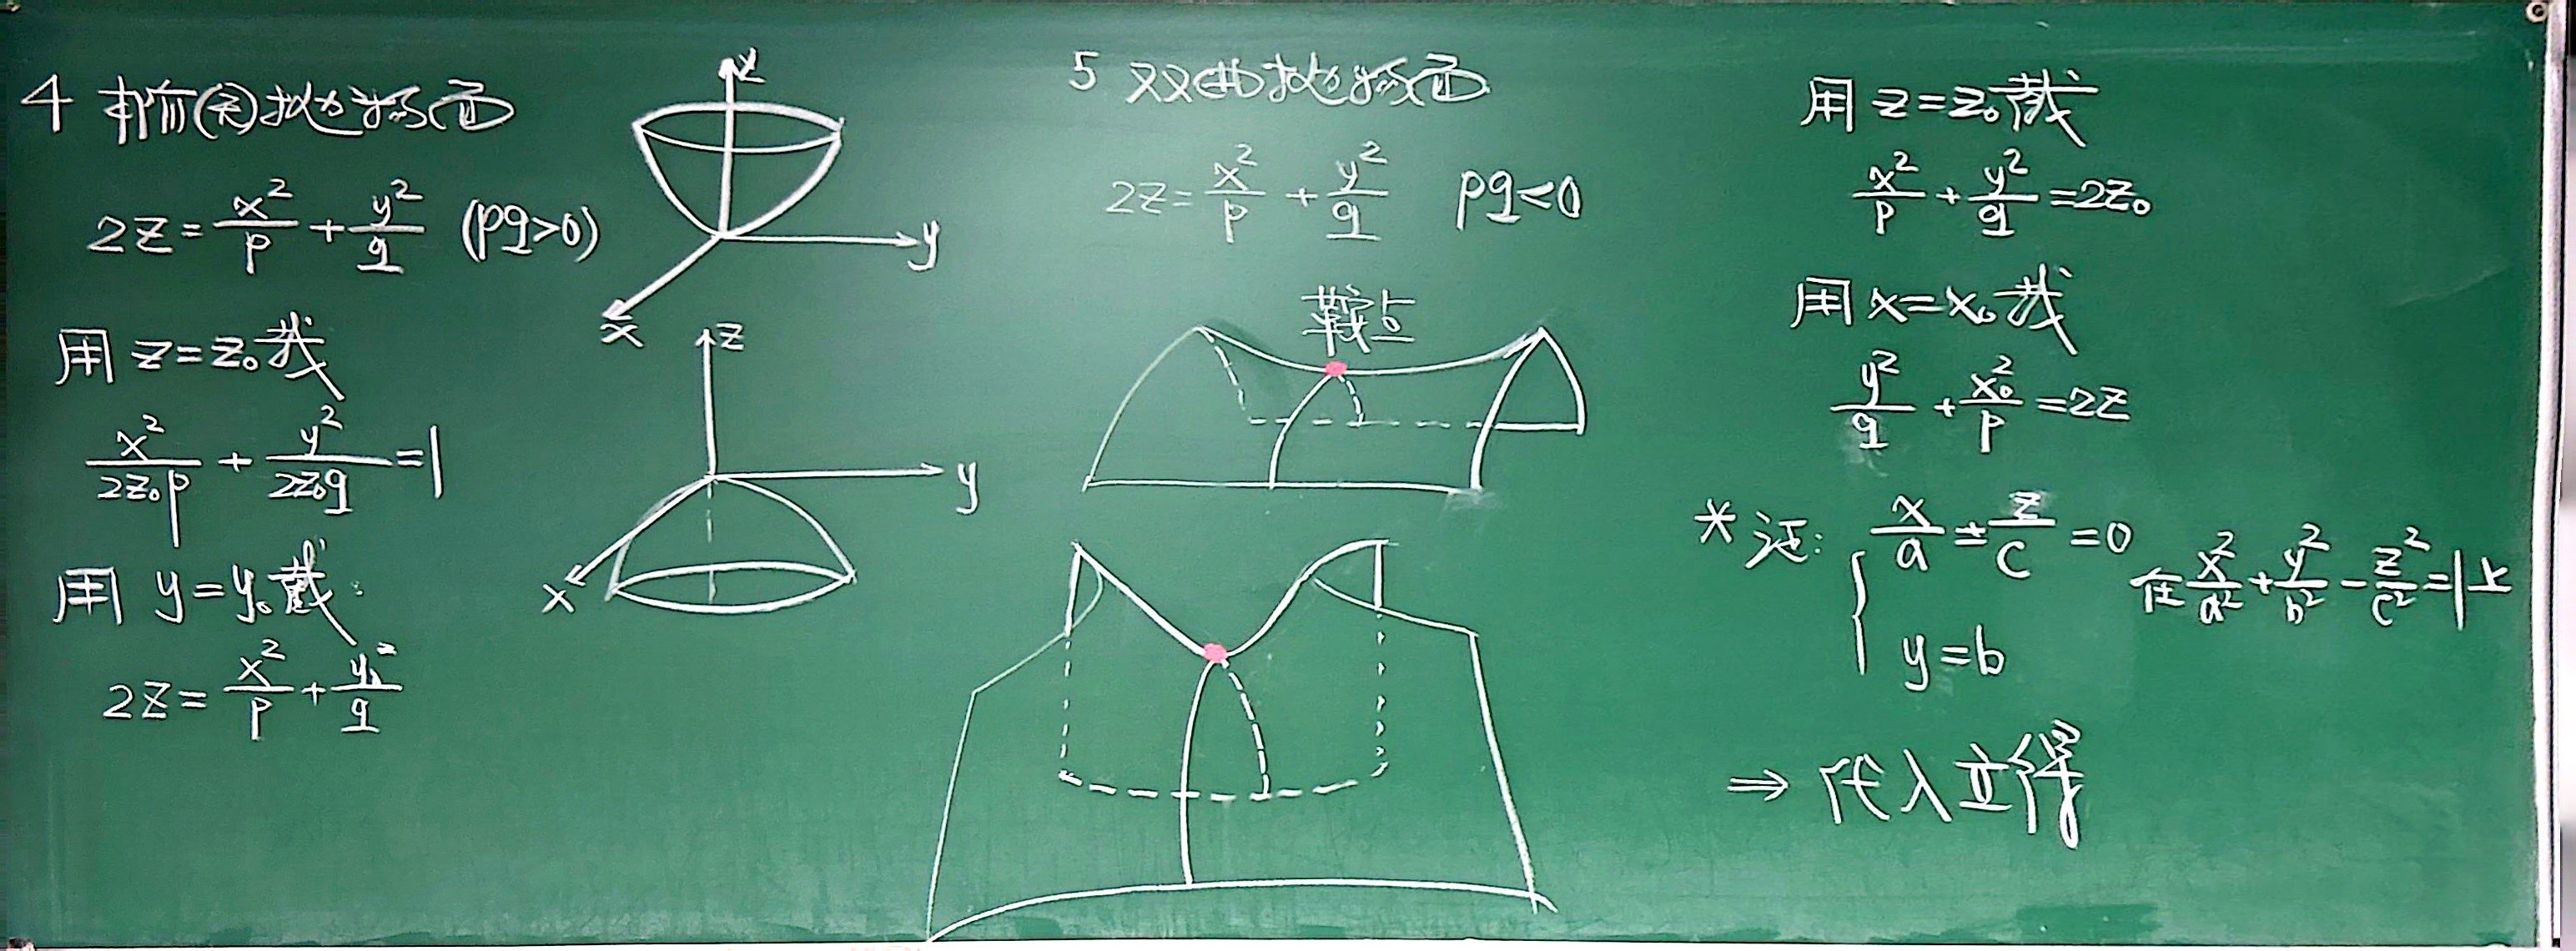 4 椭(圆)抛物面
2z = x²/p + y²/q (pq>0)
用 z=z₀截
x²/(2z₀p) + y²/(2z₀q) = 1
用 y=y₀截
2z = x²/p + y₀²/q
z
y
x
z
y
x
5 双曲抛物面
2z = x²/p + y²/q pq<0
鞍点
用 z=z₀截
x²/p + y²/q = 2z₀
用 x=x₀截
y²/q + x₀²/p = 2z
* 证: { x/a ± z/c = 0
y=b
在 x²/a² + y²/b² − z²/c² = 1上
⇒ 代入立得